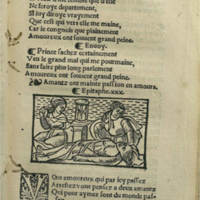 Ne feroye departement,
Si sry diroye vrayement
Que cest qui vers elle me maine,
Car ie congnois que plainement
Amoureux ont souvent grand peine.
Envoy.
Prince sachez certainement
Vers le grand mal qui me pourmaine,
Sans faire plus long parlement
Amoureux ont souvent grand peine.
Amantz ont mainte passion en amours.
Epitaphe.xxx.
Vous amoureux qui par icy passez
Arrestez vous pensez a deux amans
Qui pour aymer sont du monde pas-